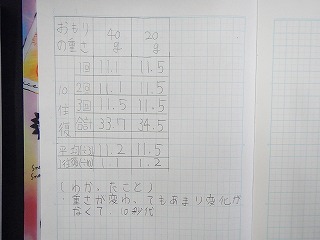 おもりの重さ 40g 20g
10往復 1回 11.1 11.5
2回 11.1 11.5
3回 11.5 11.5
合計 33.7 34.5
平均(÷3) 11.2 11.5
1往復(÷10) 1.1 1.2
(わかったこと)
・重さが変わってもあまり変化が
なくて、10秒代